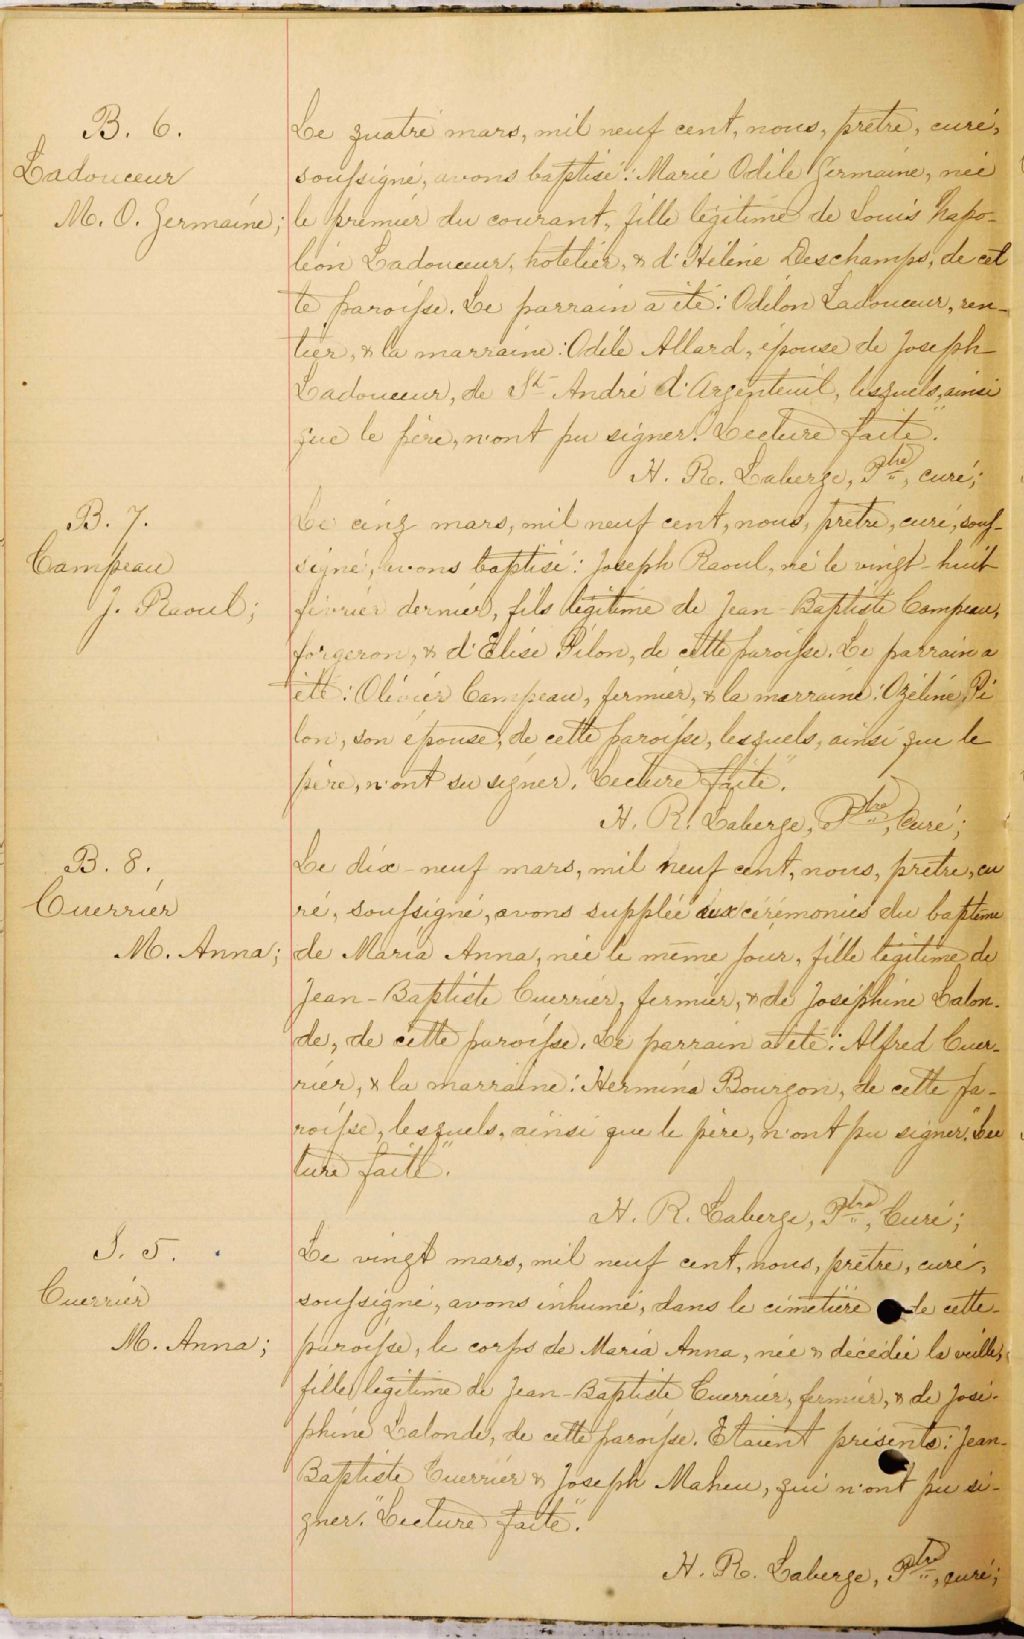 B. 6.
Ladouceur
M. O. Germaine;
Le quatre mars, mil neuf cent, nous, prêtre, curé,
soussigné, avons baptisé: Marie Odile Germaine, née
le premier du courant, fille légitime de Louis Napo-
léon Ladouceur, hotelier, & d'Hélène Deschamps, de cet
te paroisse. Le parrain a été: Odilon Ladouceur, ren-
tier, & la marraine: Odile Allard, épouse de Joseph
Ladouceur, de St André d'Argenteuil, lesquels, ainsi
que le père, n'ont pu signer. "Lecture faite".
H. R. Laberge, Ptre, curé;
B. 7.
Campeau
J. Raoul;
Le cinq mars, mil neuf cent, nous, prêtre, curé, sous-
signé, avons baptisé: Joseph Raoul, né le vingt-huit
février dernier, fils légitime de Jean-Baptiste Campeau,
forgeron, & d'Elise Pilon, de cette paroisse. Le parrain a
été: Olivier Campeau, fermier, & la marraine: Ozéline Pi
lon, son épouse, de cette paroisse, lesquels, ainsi que le
père, n'ont su signer. "Lecture faite".
H. R. Laberge, Ptre, Curé;
B. 8.
Cuerrier
M. Anna;
Le dix-neuf mars, mil neuf cent, nous, prêtre, cu
ré, soussigné, avons suppléé aux cérémonies du baptême
de Maria Anna, née le même jour, fille légitime de
Jean-Baptiste Cuerrier, fermier, & de Joséphine Lalon-
de, de cette paroisse. Le parrain a été: Alfred Cuer-
rier, & la marraine: Hermina Bourgon, de cette pa-
roisse, lesquels, ainsi que le père, n'ont pu signer. "Lec
ture faite".
H. R. Laberge, Ptre, Curé;
S. 5.
Cuerrier
M. Anna;
Le vingt mars, mil neuf cent, nous, prêtre, curé,
soussigné, avons inhumé, dans le cimetière de cette
paroisse, le corps de Maria Anna, née & décédée la veille,
fille légitime de Jean-Baptiste Cuerrier, fermier, & de José-
phine Lalonde, de cette paroisse. Etaient présents: Jean-
Baptiste Cuerrier & Joseph Maheu, qui n'ont pu si-
gner. "Lecture faite".
H. R. Laberge, Ptre, curé;